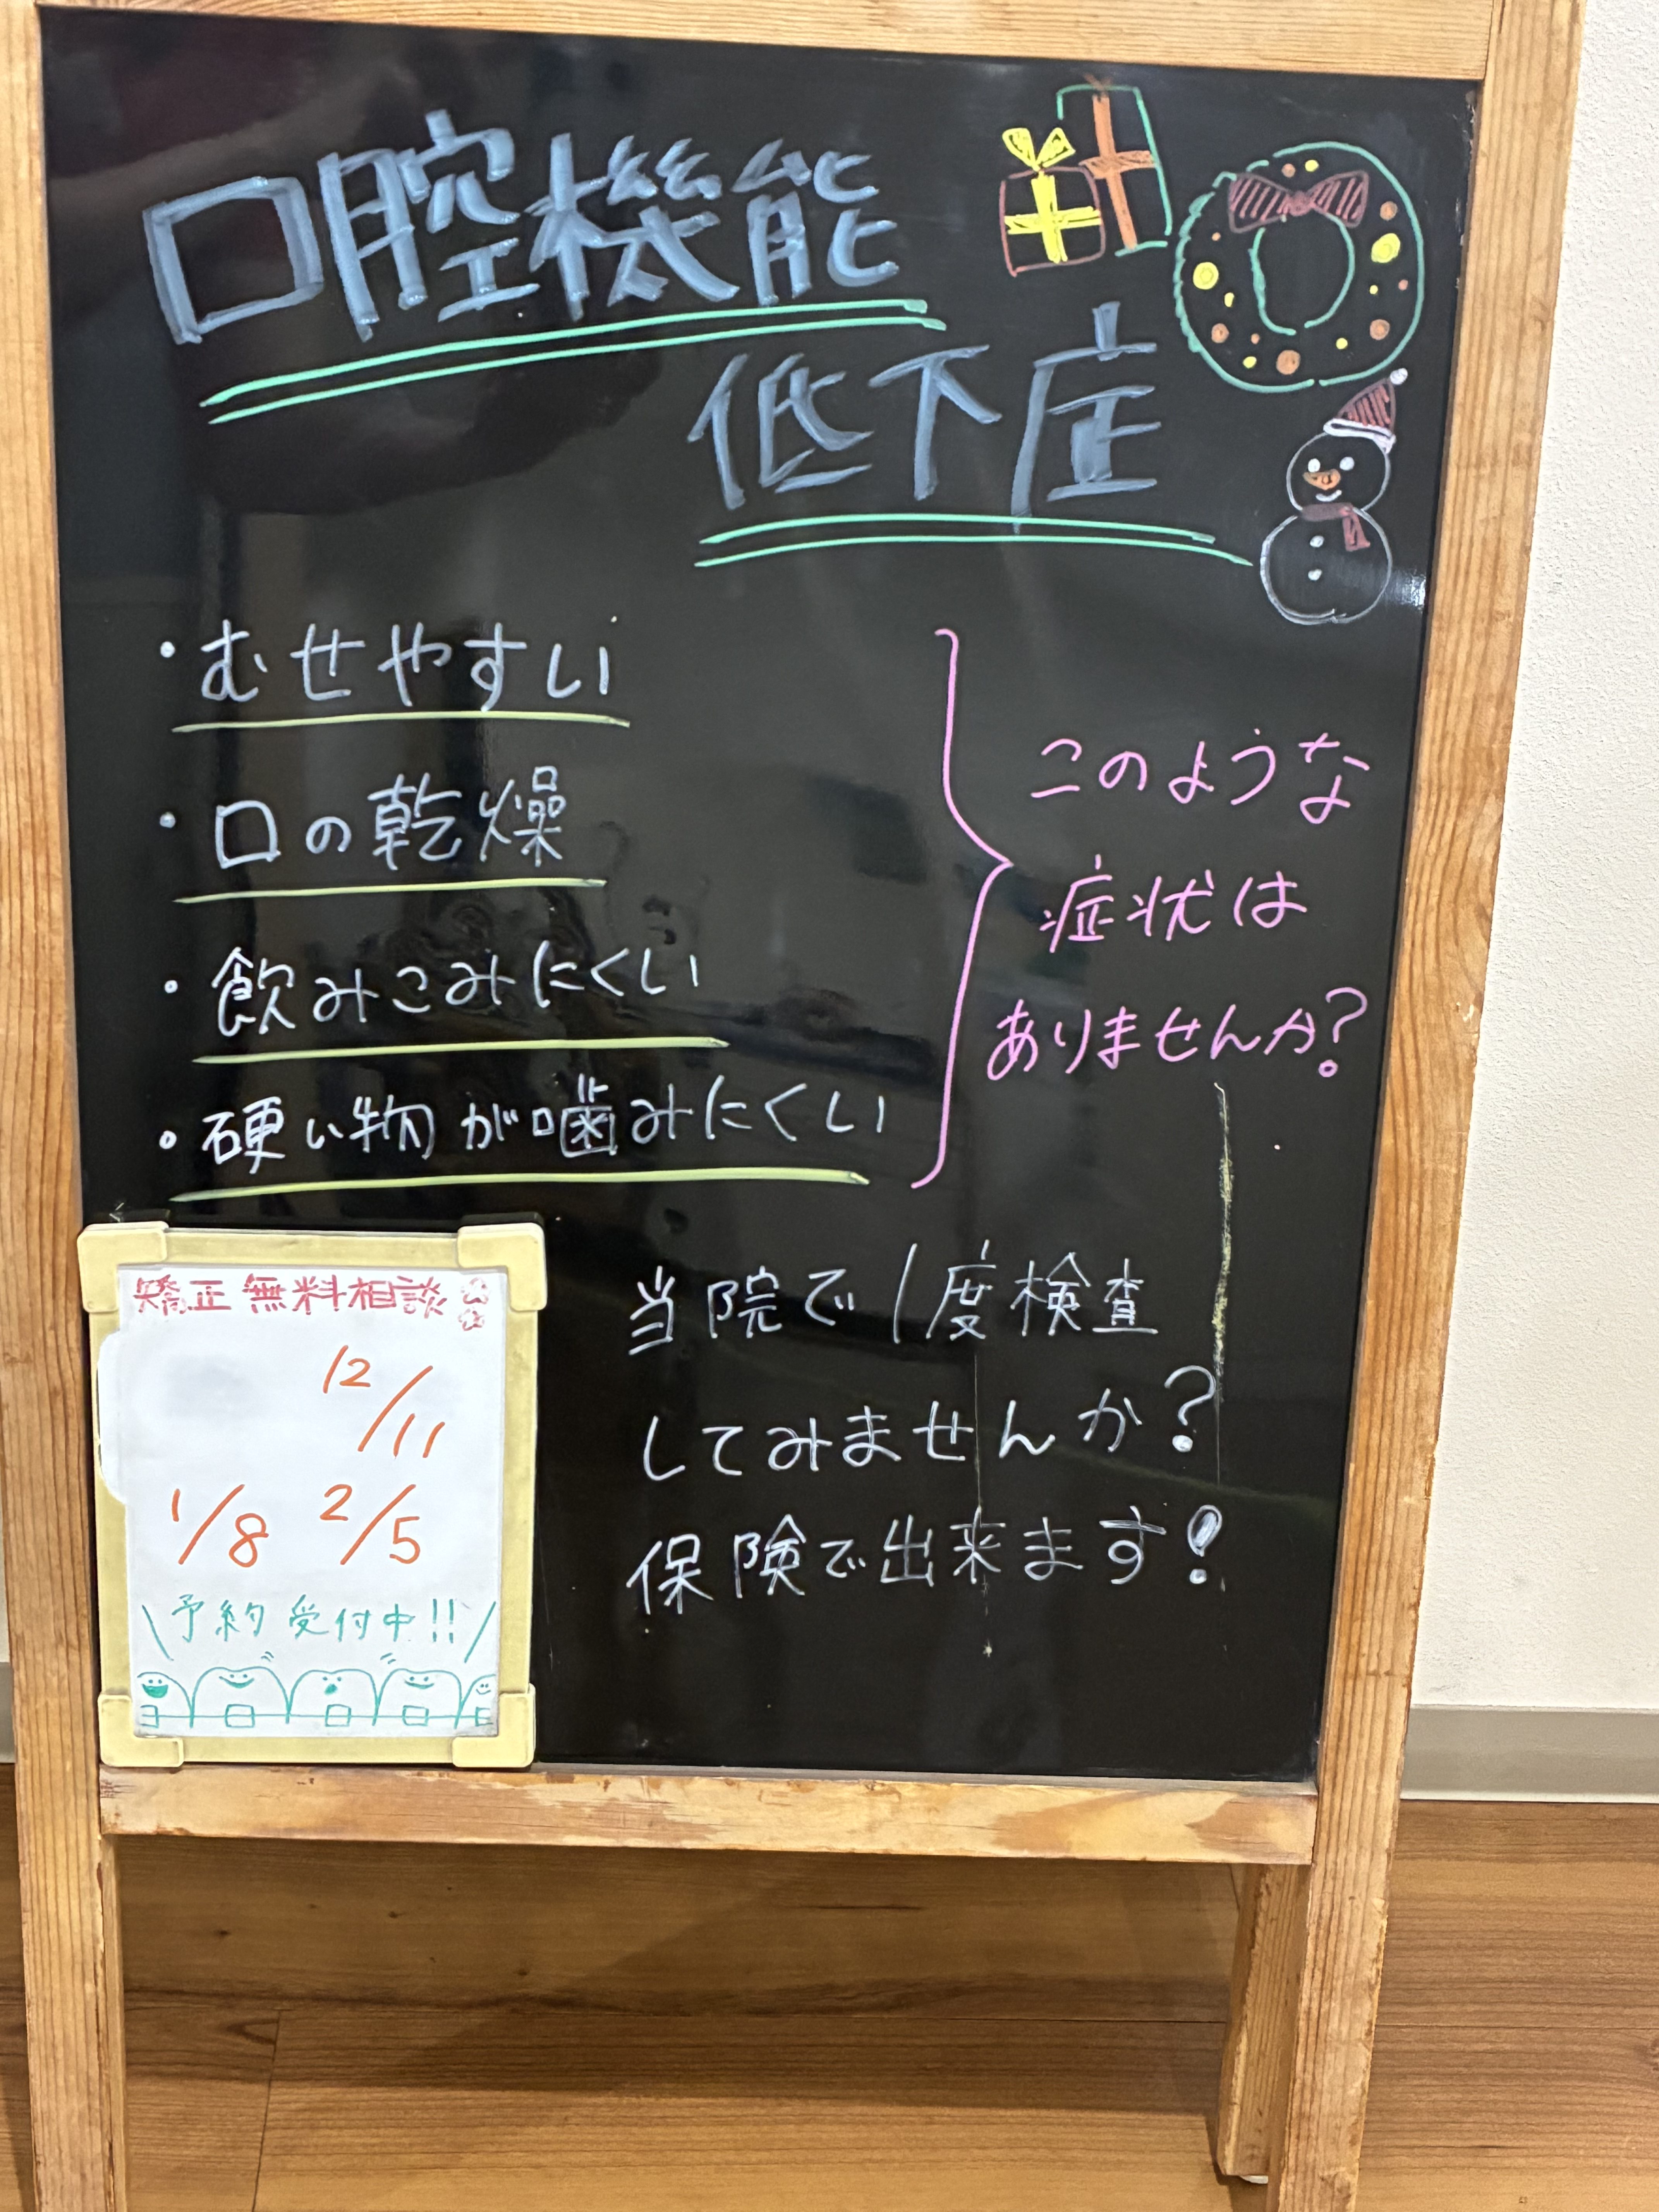 口腔機能
低下症
・むせやすい
・口の乾燥
・飲みこみにくい
・硬い物が噛みにくい
このような
症状は
ありませんか?
当院で1度検査
してみませんか?
保険で出来ます!
矯正無料相談
12/11
1/8 2/5
\予約受付中!!/